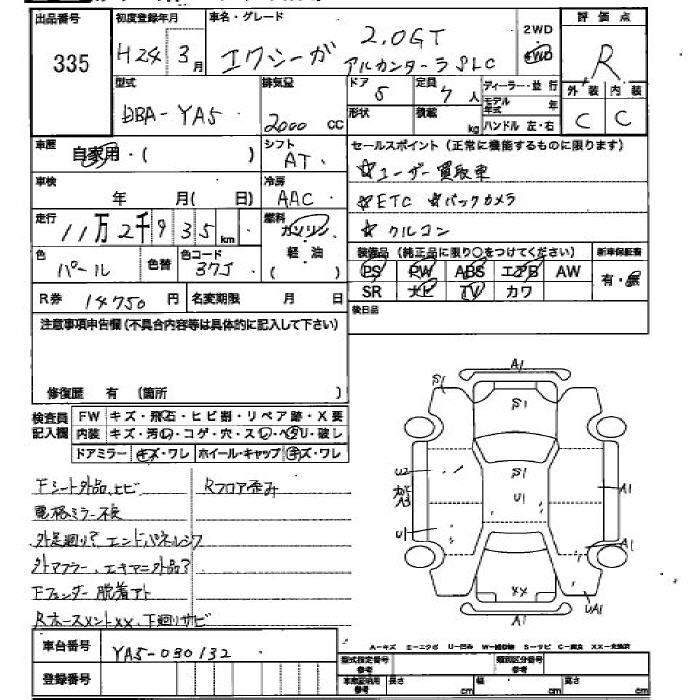 出品番号 初度登録年月 車名・グレード 2WD 評価点
335 H24年 3月 エクシーガ 2.0GT アルカンターラSLC 4WD R
型式 排気量 ドア 定員 ディーラー・並行 外装 内装
DBA-YA5 2000 CC 5 7人 モデル年式 年 C C
形状 積載 kg ハンドル 左・右
車歴 自家用・( ) シフト AT セールスポイント(正常に機能するものに限ります)
☆ユーザー買取車
車検 年 月( 日) 冷房 AAC
☆ETC ☆バックカメラ
走行 11万2千935km 燃料 ガソリン 軽・油 ( )
☆クルコン
色 パール 色替 色コード 37J
装備品(純正品に限り○をつけてください) 新車保証書
PS PW ABS エアB AW 有・無
SR ナビ TV カワ
R券 14750円 名変期限 月 日
後日品
注意事項申告欄(不具合内容等は具体的に記入して下さい)
修復歴 有 (箇所 )
検査員記入欄 FW キズ・飛石・ヒビ割・リペア跡・X要
内装 キズ・汚れ・コゲ・穴・スレ・ヘタリ・破レ
ドアミラー キズ・ワレ ホイール・キャップ キズ・ワレ
Fシート外品、ヒビ Rフロア歪み
電格ミラー不良
外足廻り? エンドパネル
外マフラー、エキマニ外品?
Fフェンダー脱着アト
下廻りサビ
A1
S1
S1
U2 S1
A3 U1 A1
U1
A1
XX
UA1
A1
車台番号 YA5-030132
登録番号
A-キズ E-エクボ U-凹み S-サビ XX-交換済
型式指定番号 参考 類別区分番号 参考
参考 長さ cm 幅 cm 高さ cm